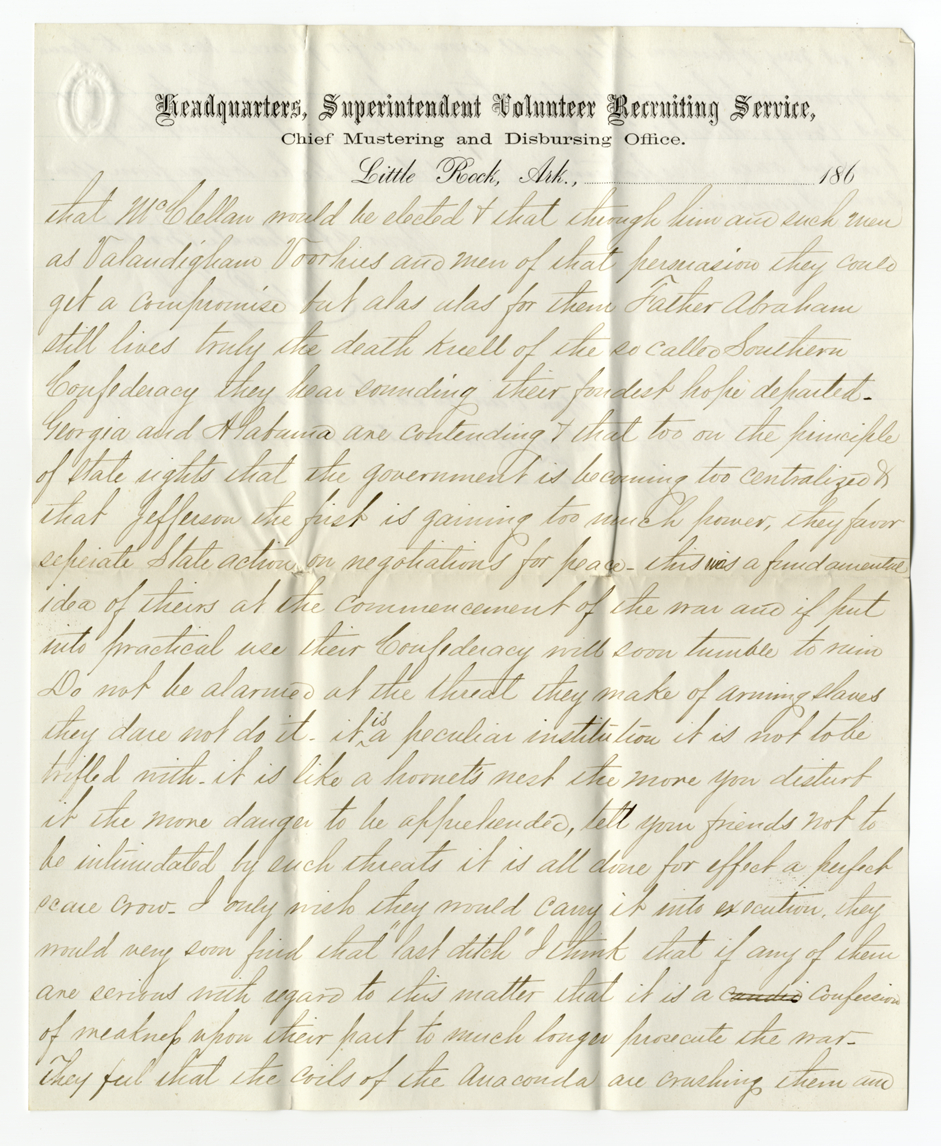 Headquarters, Superintendent Volunteer Recruiting Service,
Chief Mustering and Disbursing Office.
Little Rock, Ark., 186
that McClellan would be elected & that through him and such men
as Valandigham Voorhies and men of that persuasion they could
get a compromise but alas alas for them Father Abraham
still lives truly the death knell of the so called Southern
Confederacy they hear sounding their fondest hope departed-
Georgia and Alabama are contending & that too on the principle
of State rights that the government is becoming too centralized &
that Jefferson the first is gaining too much power, they favor
seperate State action on negotiations for peace- this was a fundamental
idea of theirs at the commencement of the war and if put
into practical use their Confederacy will soon tumble to ruin
Do not be alarmed at the threat they make of arming slaves
they dare not do it- it is a peculiar institution it is not to be
trifled with- it is like a hornets nest the more you disturb
it the more danger to be apprehended, tell your friends not to
be intimidated by such threats it is all done for effect a perfect
scare crow- I only wish they would carry it into execution. they
would very soon find that "last ditch" I think that if any of them
are serious with regard to this matter that it is a candid confession
of weakness upon their part to much longer prosecute the war-
They feel that the coils of the Anaconda are crushing them and